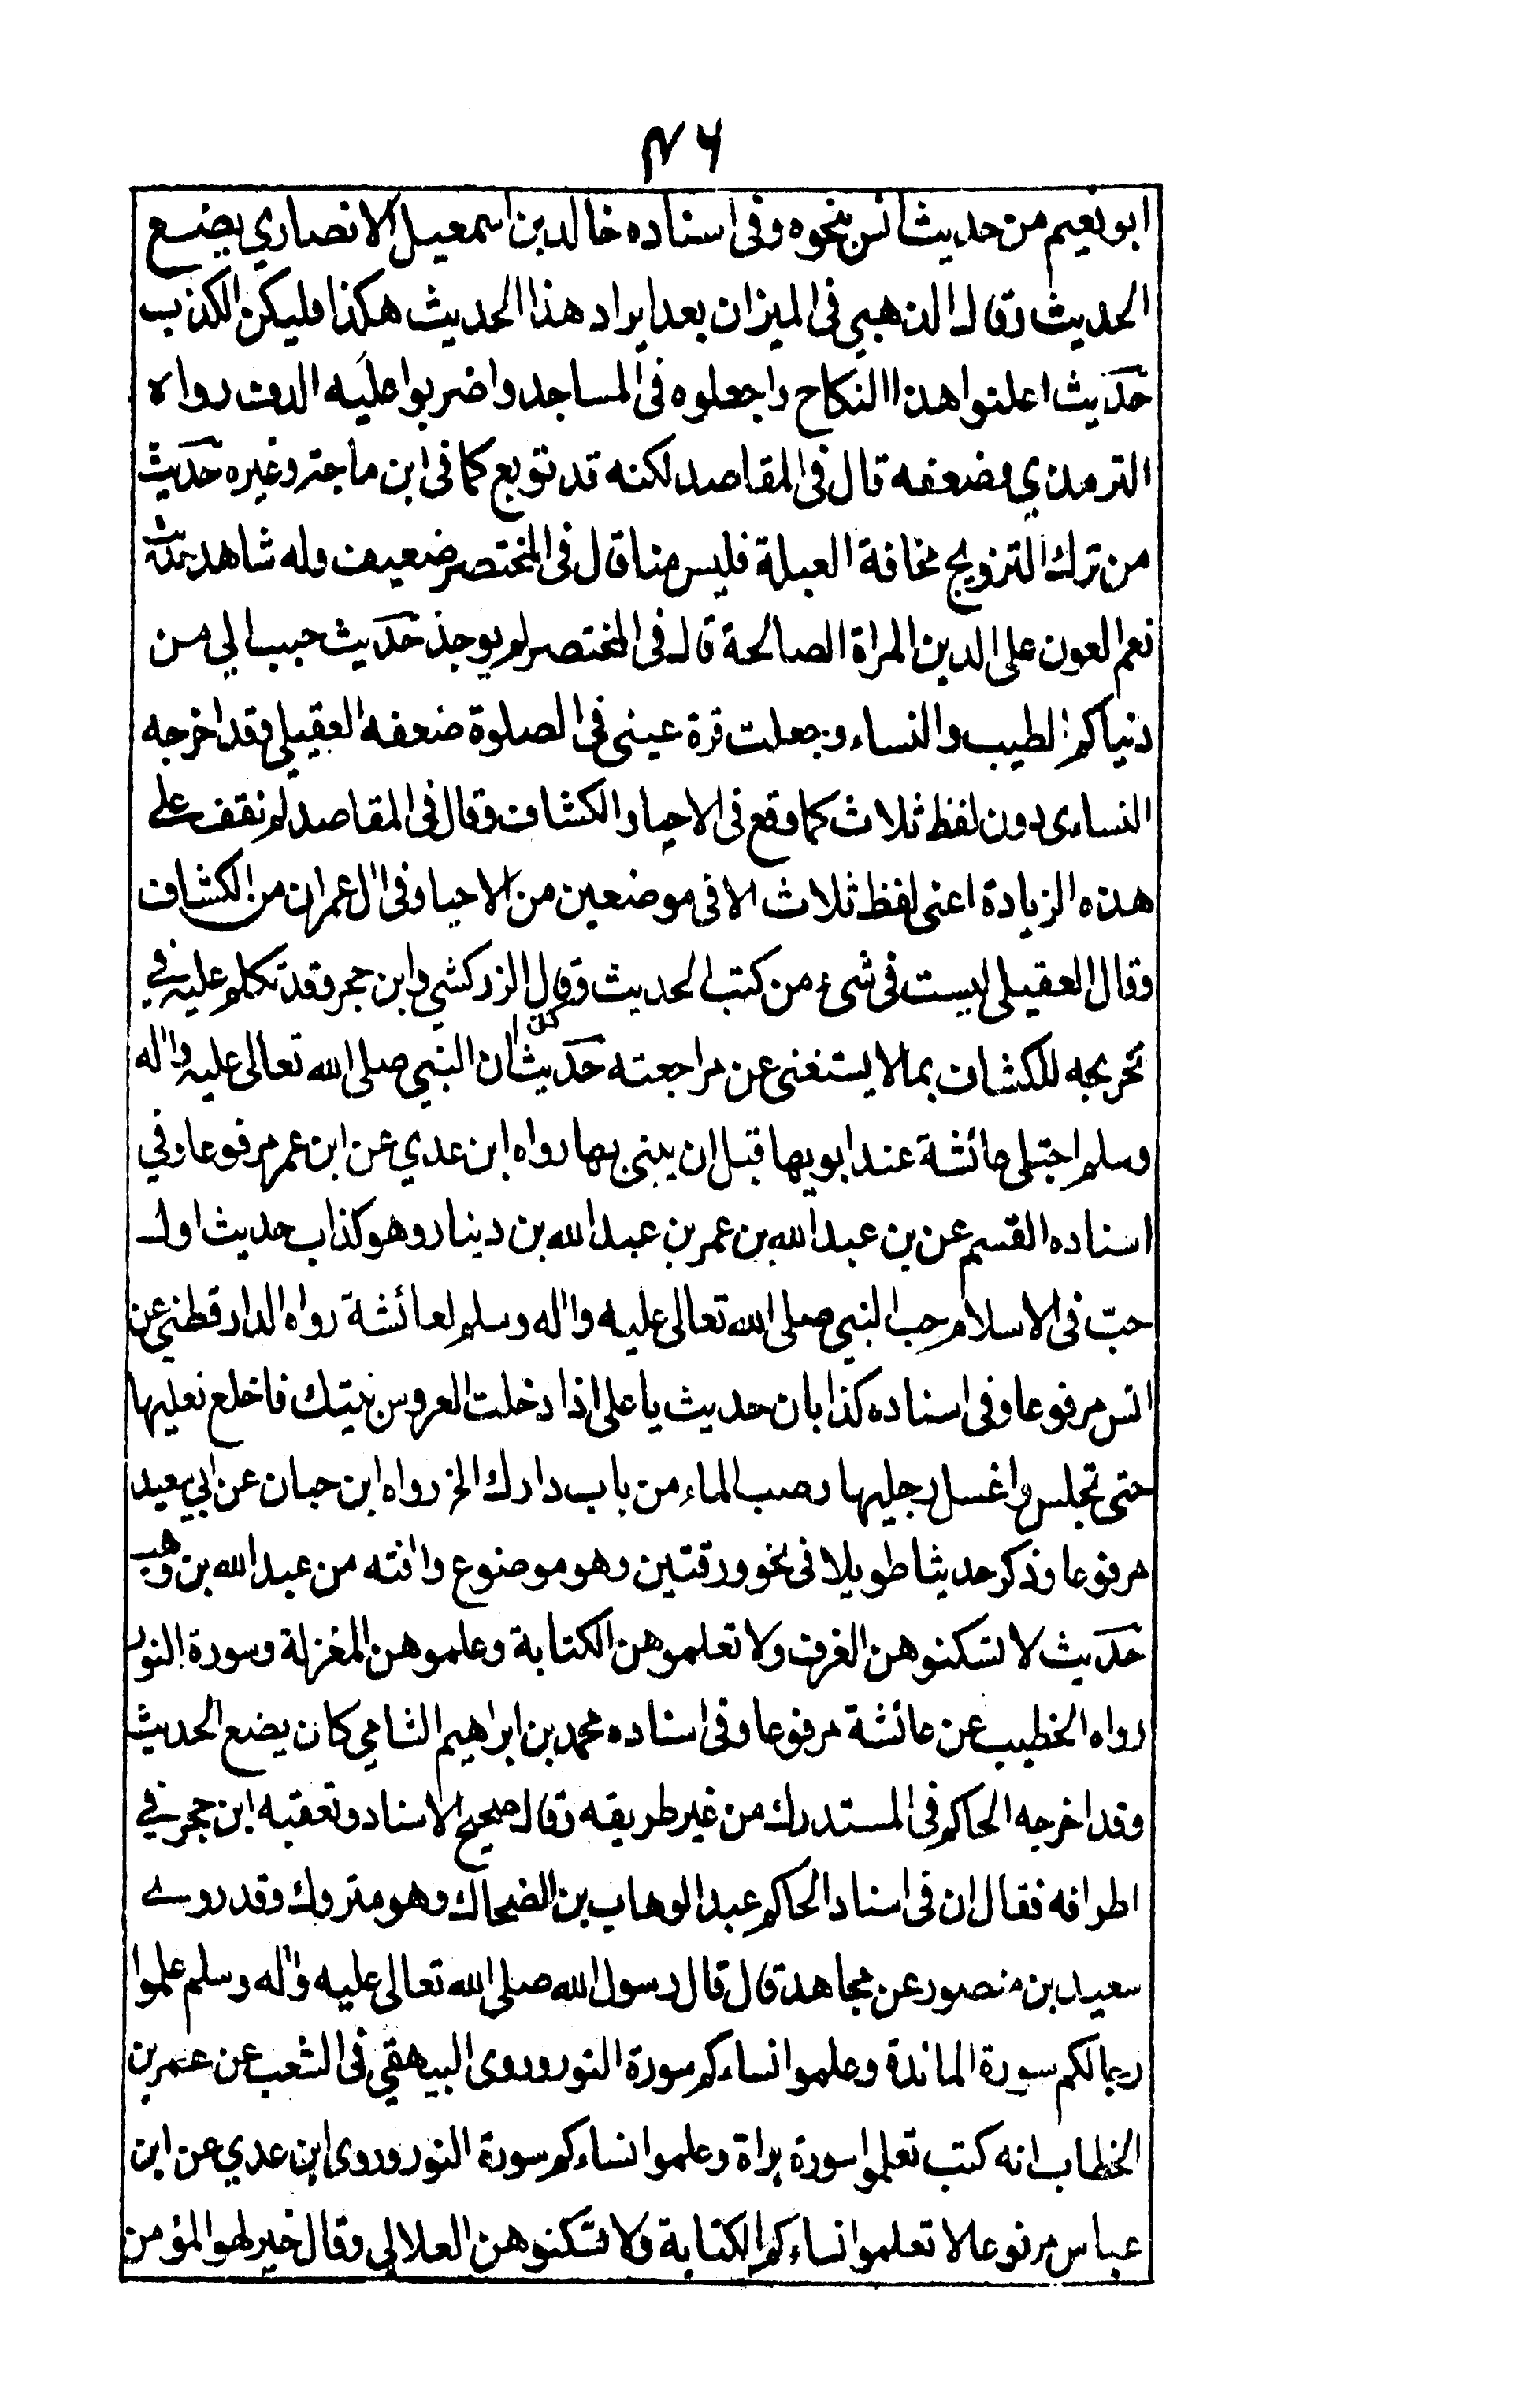 ۴۶
ابو نعيم من حديث انس بنحوه وفى اسناده خالد بن اسمعيل الانصاري يضع
الحديث وقال الذهبي فى الميزان بعد ايراد هذا الحديث هكذا فليكن الكذب
حديث اعلنوا هذا النكاح واجعلوه فى المساجد واضربوا عليه الدف رواه
الترمذي وضعفه قال فى المقاصد لكنه قد توبع كما فى ابن ماجة وغيره حديث
من ترك التزويج مخافة العيلة فليس منا قال فى المختصر ضعيف وله شاهد حديث
نعم العون على الدين المراة الصالحة قال فى المختصر لم يوجد حديث حبب الي من
دنياكم الطيب والنساء وجعلت قرة عينى فى الصلوة ضعفه العقيلي وقد اخرجه
النساءى بدون لفظ ثلاث كما وقع فى الاحيا والكشاف وقال فى المقاصد لم نقف على
هذه الزيادة اعنى لفظ ثلاث الا فى موضعين من الاحيا وفى اٰل عمران من الكشاف
وقال العقيلى ليست فى شىء من كتب الحديث وقال الزركشي وابن حجر وقد تكلم عليه في
تخريجه للكشاف بما لا يستغنى عن مراجعته حديث ان النبي صلى الله تعالى عليه واٰله
وسلم اجتلى عائشة عند ابويها قبل ان يبنى بها رواه ابن عدي عن ابن عمر مرفوعا وفي
اسناده القسم عن بن عبد الله بن عمر بن عبد الله بن دينار وهو كذاب حديث اول
حبّ فى الاسلام حب النبي صلى الله تعالى عليه واٰله وسلم لعائشة رواه الدارقطني عن
انس مرفوعا وفى اسناده كذابان حديث يا على اذا دخلت العروس بيتك فاخلع نعليها
حتى تجلس واغسل رجليها وصب الماء من باب دارك الخ رواه ابن حبان عن ابي سعيد
مرفوعا وذكر حديثا طويلا فى نحو ورقتين وهو موضوع واٰفته من عبد الله بن وهب
حديث لا تسكنوهن الغرف ولا تعلموهن الكتابة وعلموهن المغزلة وسورة النور
رواه الخطيب عن عائشة مرفوعا وفى اسناده محمد بن ابراهيم الشامي كان يضع الحديث
وقد اخرجه الحاكم فى المستدرك من غير طريقه وقال صحيح الاسناد وتعقبه ابن حجر في
اطرافه فقال ان فى اسناد الحاكم عبد الوهاب بن الضحاك وهو متروك وقد روے
سعيد بن منصور عن مجاهد قال قال رسول الله صلى الله تعالى عليه واٰله وسلم علموا
رجالكم سورة المائدة وعلموا نساءكم سورة النور وروى البيهقي فى الشعب عن عمر بن
الخطاب انه كتب تعلموا سورة براة وعلموا نساءكم سورة النور وروى ابن عدي عن ابن
عباس مرفوعا لا تعلموا نساءكم الكتابة ولا تسكنوهن العلالي وقال خير لهو المؤمن